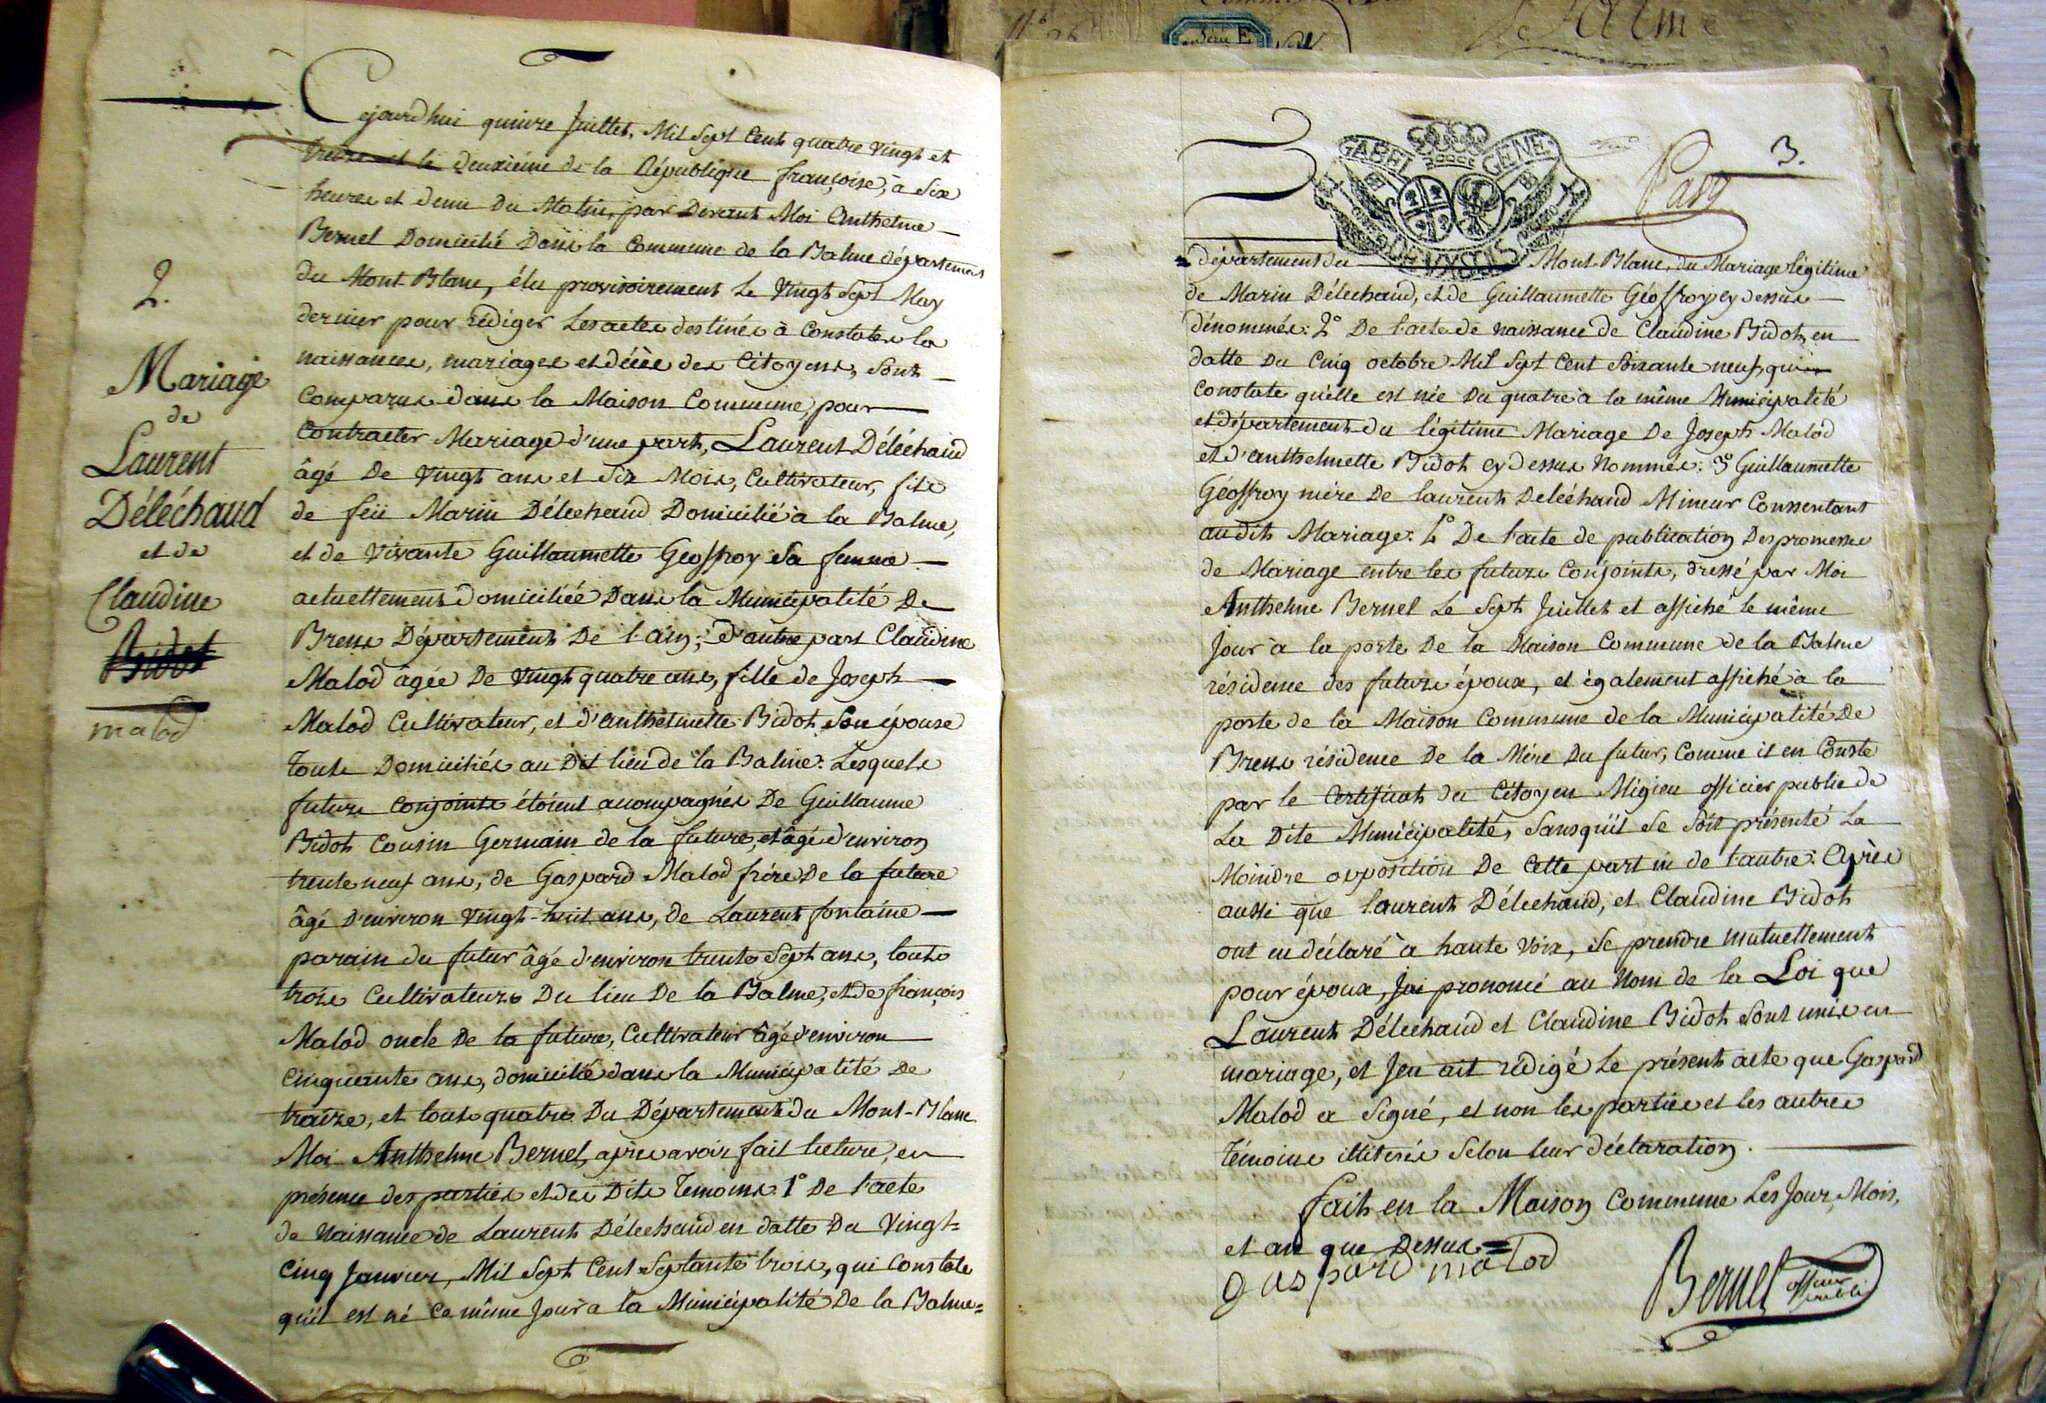 2.
Mariage
de
Laurent
Déléchaud
et de
Claudine
Bidot
malod
Cejourdhui quinze Juillet, Mil Sept Cent quatre vingt et
treize et le deuxiéme de la République françoise, à Six
heures et demie du Matin, par devant Moi Anthelme
Bernel Domicilié Dans la Commune de la Balme département
du Mont Blanc, élu provisoirement le Vingt Sept May
dernier pour rédiger les actes destinés à Constater la
naissances, mariages et décès des Citoyens, Sont
Comparus dans la Maison Commune, pour
Contracter Mariage d'une part, Laurent Déléchaud
âgé De Vingt ans et Six Mois, Cultivateur, fils
de feü Marin Délechaud Domicilié à la Balme,
et de Vivante Guillaumette Geoffroy Sa femme
actuellement domiciliée Dans la Municipalité De
Brens Département De l'ain; d'autre part Claudine
Malod âgée De Vingt quatre ans, fille de Joseph
Malod Cultivateur, et d'anthelmette Bidot Son épouse
touts Domiciliés au Dit lieu de la Balme. Lesquels
futurs Conjoints étoient acompagnés De Guillaume
Bidot Cousin Germain de la future, et âgé d'environ
trente neuf ans, de Gaspard Malod frére De la future
âgé d'environ vingt-huit ans, de Laurent fontaine
parain du futur âgé d'environ trente Sept ans, touts
trois Cultivateurs Du lieu De la Balme, et de françois
Malod oncle De la future, Cultivateur âgé d'environ
Cinquante ans, domicilié dans la Municipalité De
traize, et touts quatre Du Département du Mont-Blanc
Moi Anthelme Bernel, aprés avoir fait lecture, en
présence des parties et des Dits Temoins. 1° De l'acte
de Naissance de Laurent Délechaud en datte Du Vingt=
Cinq Janvier, Mil Sept Cent Septante trois, qui Constate
qu'il est né ce même Jour à la Municipalité De la Balme=
GABEL GENE
3.
= département du Mont-Blanc, du Mariage légitime
de Marin Délechaud, et de Guillaumette Géoffroy cy dessus
dénommés: 2° De l'acte de naissance de Claudine Bidot, en
datte Du Cinq octobre Mil Sept Cent Soixante neuf, qui
Constate quélle est née Du quatre à la même Municipalité
et département du légitime Mariage De Joseph Malod
et d'anthelmette Bidot cy dessus Nommés: 3° Guillaumette
Géoffroy mére De laurent Deléchaud Mineur Consentant
au dit Mariage: 4° De l'acte de publication Des promesses
de Mariage entre les futurs Conjoints, dressé par Moi
Anthelme Bernel Le Sept Juillet et affiché le même
Jour à la porte De la Maison Commune de la Balme
résidence des futurs époux, et également affiché à la
porte de la Maison Commune de la Municipalité De
Brens résidence De la Mére Du futur, Comme il en Conste
par le Certificat du Citoyen Migieu officier public de
La Dite Municipalité, Sans qu'il Se Soit présenté La
Moindre opposition De Cette part ni de l'autre: Aprés
aussi que laurent Délechaud, et Claudine Bidot
ont eu déclaré à haute Voix, Se prendre Mutuellement
pour époux, Jai prononcé au Nom de la Loi que
Laurent Délechaud et Claudine Bidot Sont unis en
mariage, et Jen ait rédigé Le présent acte que Gaspard
Malod a Signé, et non les parties et les autres
Témoins illitérés Selon leur déclaration.
fait en la Maison Commune Les Jour, Mois,
et an que Dessus =
gaspard malod
Bernel officier public